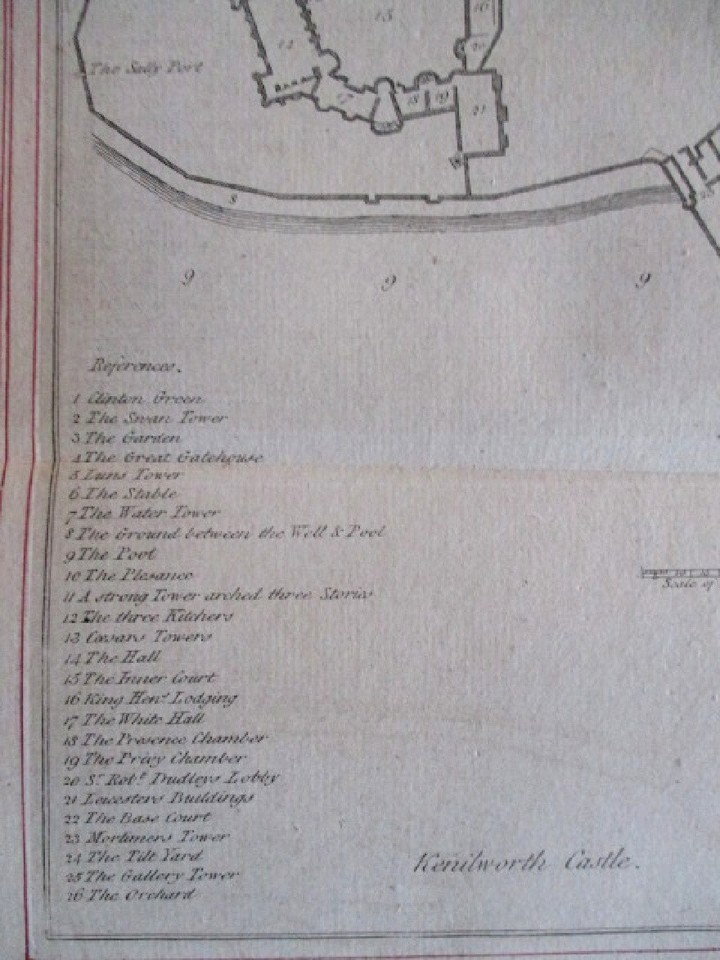 16
15
20
14
The Sally Port
17
18
19
21
8
9
9
9
References.
1 Clinton Green
2 The Swan Tower
3 The Garden
4 The Great Gatehouse
5 Luns Tower
6 The Stable
7 The Water Tower
8 The Ground between the Well & Pool
9 The Pool
10 The Plesance
11 A strong Tower arched three Stories
12 The three Kitchens
13 Cæsars Towers
14 The Hall
15 The Inner Court
16 King Henys Lodging
17 The White Hall
18 The Presence Chamber
19 The Privy Chamber
20 Sr. Robt. Dudleys Lobby
21 Leicesters Buildings
22 The Base Court
23 Mortimers Tower
24 The Tilt Yard
25 The Gallery Tower
26 The Orchard
Scale of
Kenilworth Castle.